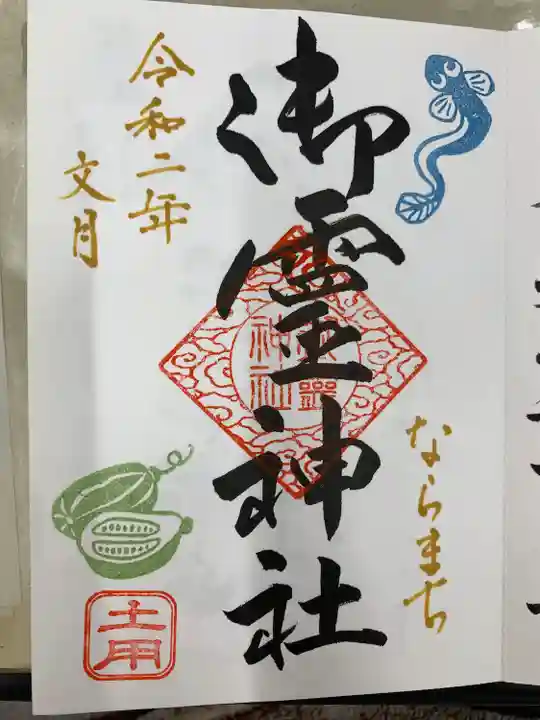 ならまち
御霊神社
御霊神社
令和二年
文月
土用